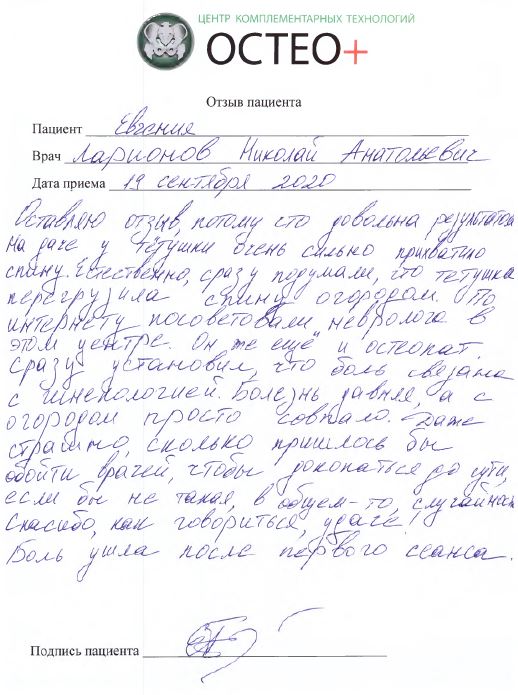 ЦЕНТР КОМПЛЕМЕНТАРНЫХ ТЕХНОЛОГИЙ
ОСТЕО+
Отзыв пациента
Пациент Евгения
Врач Ларионов Николай Анатольевич
Дата приема 19 сентября 2020
Оставляю отзыв, потому что довольна результатом
На даче у тётушки очень сильно прихватило
спину. Естественно, сразу подумали, что тётушка
перегрузила спину огородом. По
интернету посоветовали невролога в
этом центре. Он же ещё и остеопат.
Сразу установил, что боль связана
с гинекологией. Болезнь давняя, а с
огородом просто совпало. Даже
страшно, сколько пришлось бы
обойти врачей, чтобы докопаться до сути,
если бы не такая, в общем-то, случайность
Спасибо, как говориться, удаче!
Боль ушла после первого сеанса.
Подпись пациента